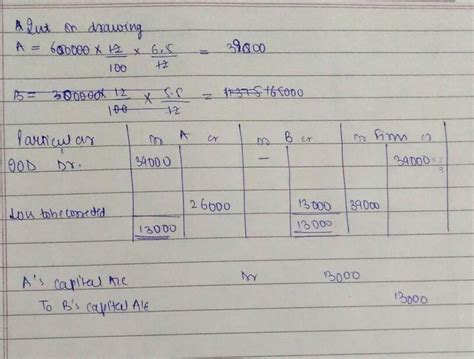 Int on drawing
A = 600000 × 12/100 × 6.5/12 = 39000
B = 300000 × 12/100 × 5.5/12 = 165000
Particular Dr A Cr Dr B Cr Dr Firm Cr
IOD Dr. 39000 — 39000
Loss to be corrected 26000 13000 39000
13000 13000
A's capital A/c Dr 13000
To B's capital A/c 13000